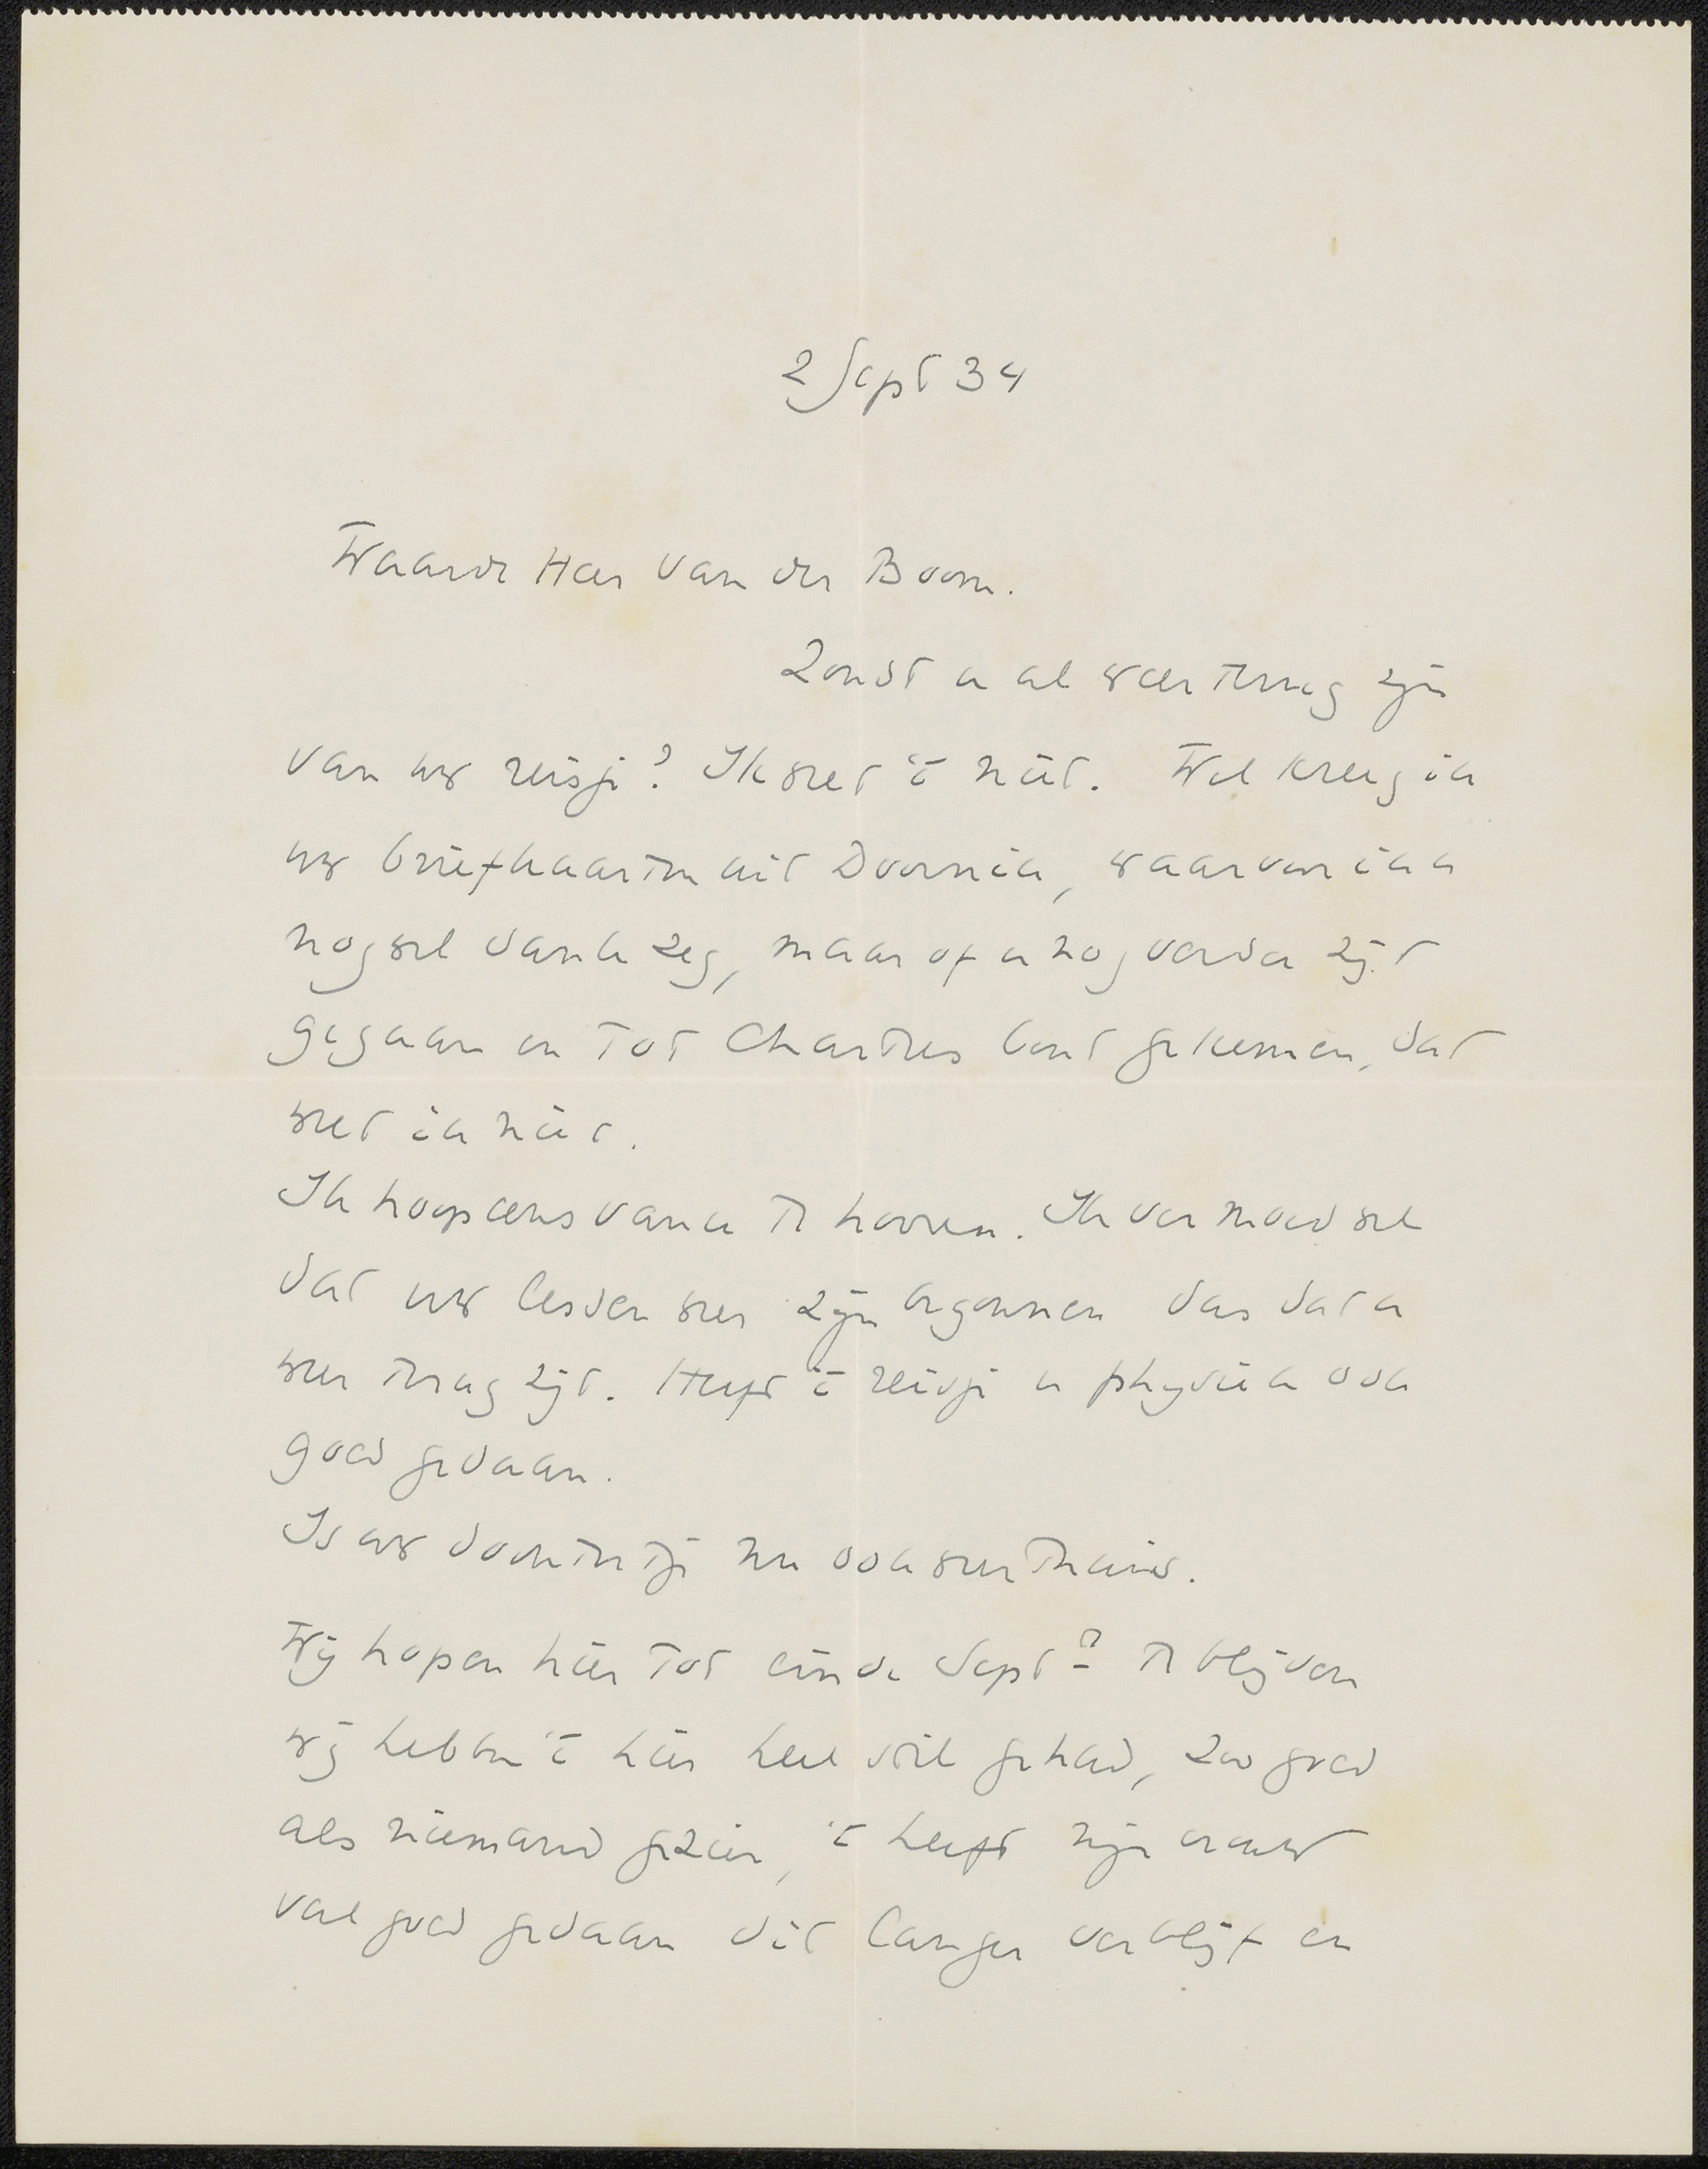 2 Sept 34
Waarde Heer van der Boom.
Zoudt u al weer terug zijn
van uw reisje? Ik weet 't niet. Wel kreeg ik
uw briefkaarten uit Doornik, waarvoor ik u
nog wel dank zeg, maar of u nog verder zijt
gegaan en tot Chartres bent gekomen, dat
weet ik niet.
Ik hoop eens van u te hooren. Ik vermoed wel
dat uw lessen weer zijn begonnen dus dat u
weer terug zijt. Heeft 't reisje u physiek ook
goed gedaan.
Is uw dochtertje nu ook weer thuis.
Wij hopen hier tot einde Sept? te blijven
wij hebben 't hier heel stil gehad, zoo goed
als niemand gezien, 't heeft mijn vrouw
veel goed gedaan dit langer verblijf en